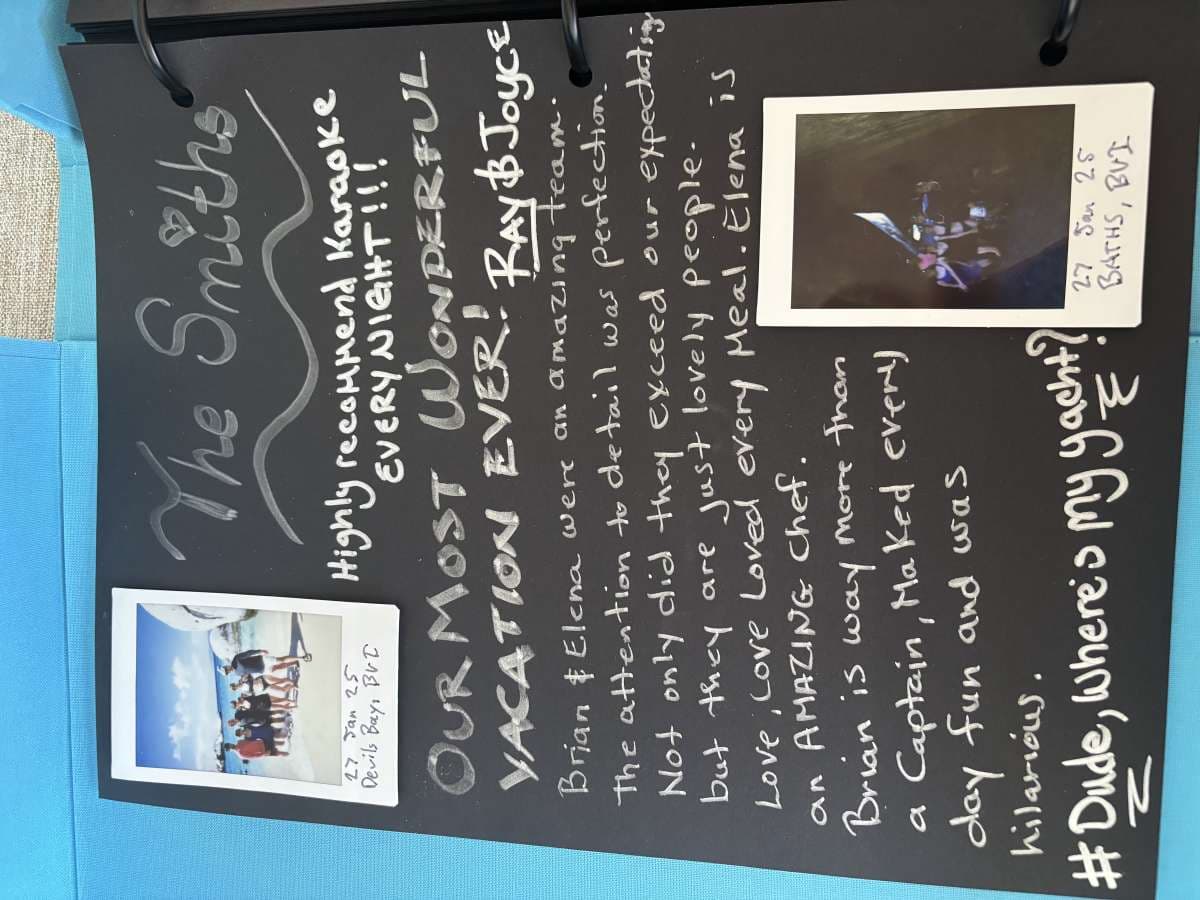 The Smiths
Highly recommend Karaoke
EVERY NIGHT!!!
27 Jan 25
Devils Bay, BVI
OUR MOST WONDERFUL
VACATION EVER! RAY & JOYCE
Brian & Elena were an amazing team.
The attention to detail was perfection.
Not only did they exceed our expectations
but they are just lovely people.
Love, Love Loved every Meal. Elena is
an AMAZING chef.
Brian is way more than
a Captain, Maked every
day fun and was
hilarious.
27 Jan 25
BATHS, BVI
#Dude, where's my yacht?